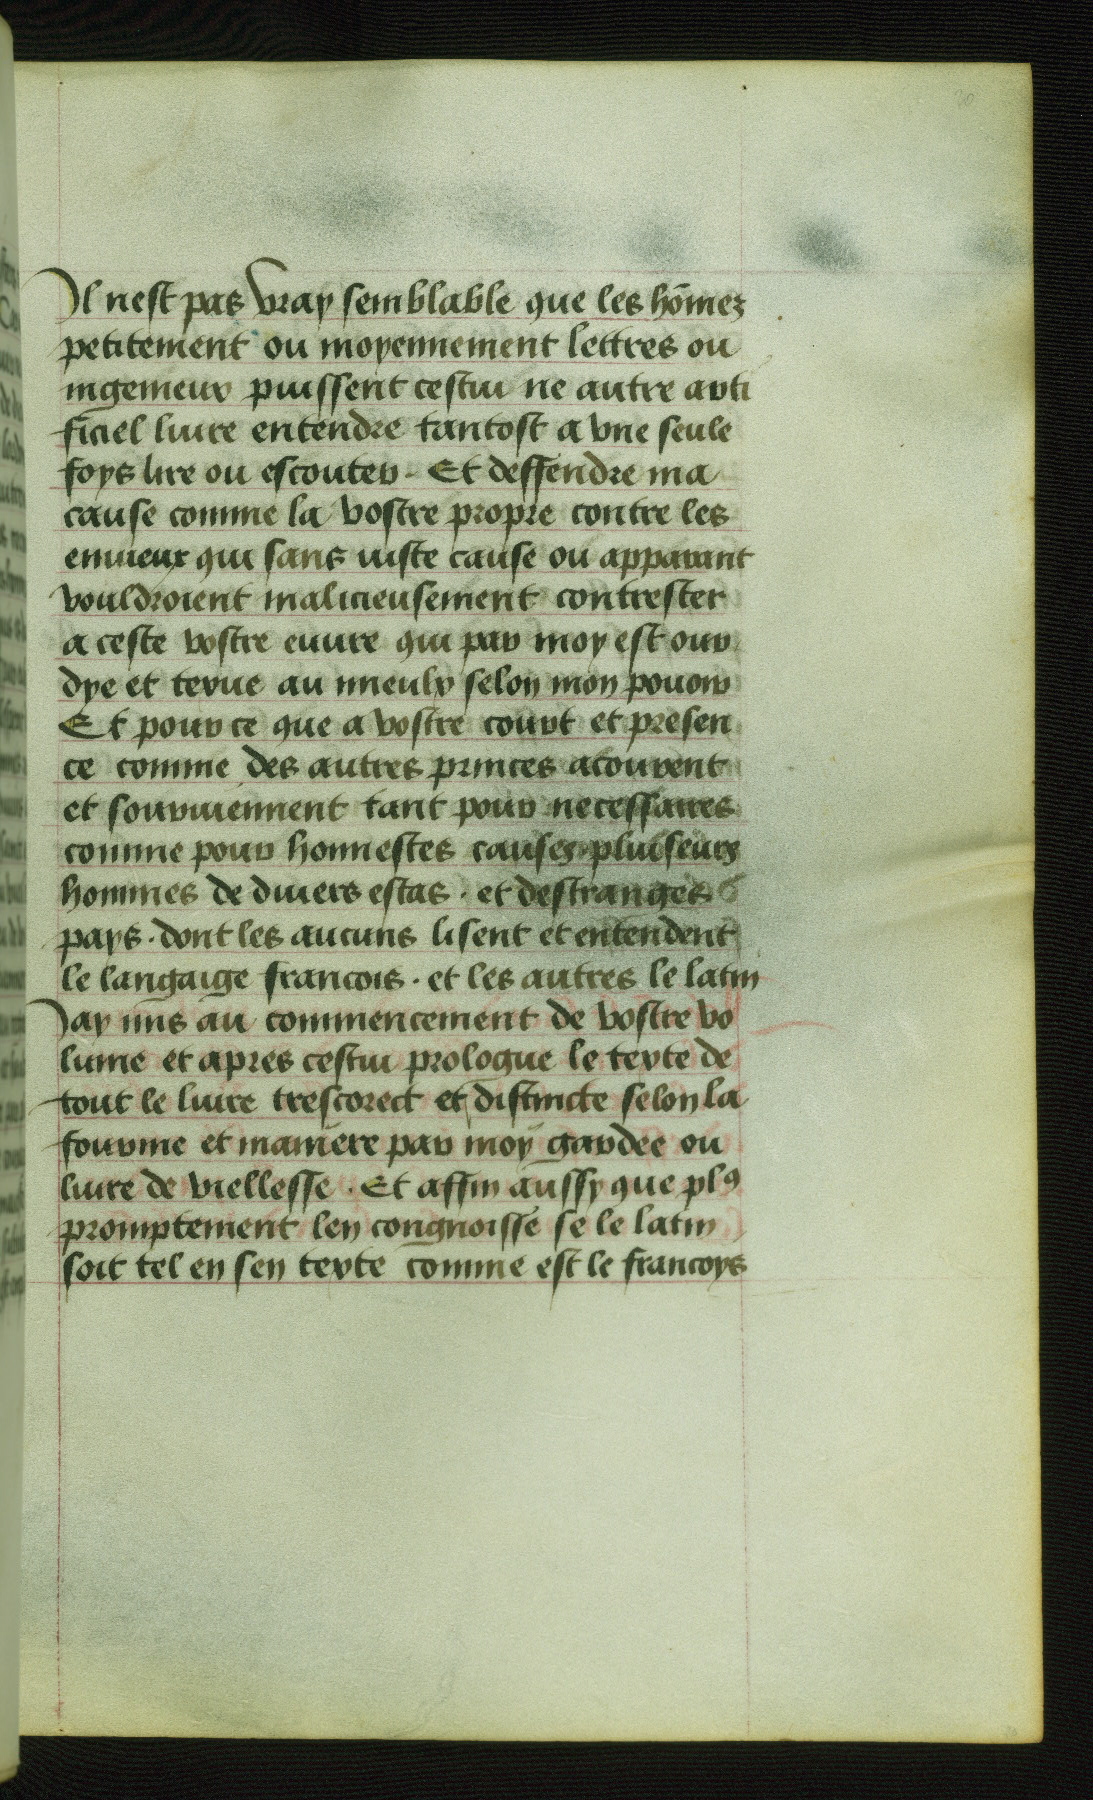 20
Il nest pas vray semblable que les hōmez
petitement ou moyennement lettres ou
ingenieux puissent cestui ne autre arti
ficiel liure entendre tantost a vne seule
foys lire ou escouter . Et deffendre ma
cause comme la vostre propre contre les
enuieux qui sans iuste cause ou apparant
vouldroient malicieusement contrester
a ceste vostre euure qui par moy est our
dye et texue au mieulx selon mon pouoir
Et pour ce que a vostre court et presen
ce comme des autres princes acourent
et souruiennent tant pour necessaires
comme pour honnestes causes pluiseurs
hommes de diuers estas . et destranges
pays . dont les aucuns lisent et entendent
le langaige francois . et les autres le latin
Jay mis au commencement de vostre vo
lume et apres cestui prologue le texte de
tout le liure trescorect et distincte selon la
fourme et maniere par moy gardee ou
liure de viellesse . Et affin aussy que plꝰ
promptement len congnoisse se le latin
soit tel en sen texte comme est le francoys